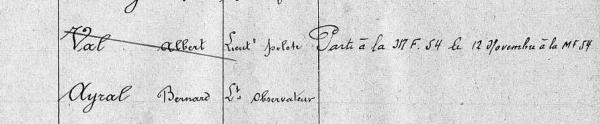 Val Albert Lieut! pilote Parti à la M.F. 54 le 12 Novembre à la MF 54
Ayral Bernard Lt. Observateur